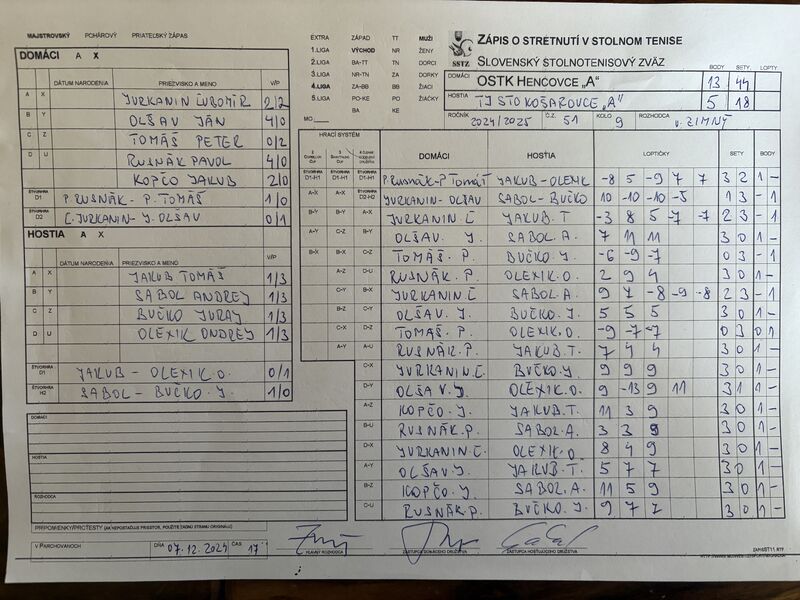 MAJSTROVSKÝ POHÁROVÝ PRIATEĽSKÝ ZÁPAS
EXTRA ZÁPAD TT MUŽI
1.LIGA VÝCHOD NR ŽENY
2.LIGA BA-TT TN DORCI
3.LIGA NR-TN ZA DORKY
4.LIGA ZA-BB BB ŽIACI
5.LIGA PO-KE PO ŽIAČKY
BA KE
MO
SSTZ
ZÁPIS O STRETNUTÍ V STOLNOM TENISE
SLOVENSKÝ STOLNOTENISOVÝ ZVÄZ
BODY SETY, LOPTY
DOMÁCI OSTK HENCOVCE „A" 13 44
HOSTIA TJ STO KOŠAROVCE „A" 5 18
ROČNÍK 2024/2025 Č.Z. 51 KOLO 9 ROZHODCA V. ZIMNÝ
DOMÁCI A X
DÁTUM NARODENIA PRIEZVISKO A MENO V/P
A X JURKANIN ĽUBOMÍR 2/2
B Y OLŠAV JÁN 4/0
C Z TOMÁŠ PETER 0/2
D U RUSNÁK PAVOL 4/0
KOPČO JAKUB 2/0
ŠTVORHRA D1 P. RUSNÁK - P. TOMÁŠ 1/0
ŠTVORHRA D2 Ľ. JURKANIN - J. OLŠAV 0/1
HOSTIA A X
DÁTUM NARODENIA PRIEZVISKO A MENO V/P
A X JAKUB TOMÁŠ 1/3
B Y SABOL ANDREJ 1/3
C Z BUČKO JURAJ 1/3
D U OLEXIK ONDREJ 1/3
ŠTVORHRA D1 JAKUB - OLEXIK.O. 0/1
ŠTVORHRA H2 SABOL - BUČKO.J. 1/0
DOMÁCI
HOSTIA
ROZHODCA
PRIPOMIENKY/PROTESTY (AK NEPOSTAČUJE PRIESTOR, POUŽITE ZADNÚ STRANU ORIGINÁLU)
V PARCHOVANOCH DŇA 07.12.2024 ČAS 17
HLAVNÝ ROZHODCA ZÁSTUPCA DOMÁCEHO DRUŽSTVA ZÁSTUPCA HOSŤUJÚCEHO DRUŽSTVA
HRACÍ SYSTÉM DOMÁCI HOSŤIA LOPTIČKY SETY BODY
ŠTVORHRA D1-H1 ŠTVORHRA D1-H1 ŠTVORHRA D1-H1 P.RUSNÁK-P.TOMÁŠ JAKUB-OLEXIK -8 5 -9 7 7 3 2 1 -
A-X A-X ŠTVORHRA D2-H2 JURKANIN-OLŠAV SABOL-BUČKO 10 -10 -10 -5 1 3 - 1
B-Y B-Y A-X JURKANIN.Ľ JAKUB.T -3 8 5 -7 -7 2 3 - 1
A-Y C-Z B-Y OLŠAV. J. SABOL.A. 7 11 11 3 0 1 -
B-X B-X C-Z TOMÁŠ. P. BUČKO.J. -6 -9 -7 0 3 - 1
A-Z D-U RUSNÁK.P. OLEXIK.O. 2 9 4 3 0 1 -
C-Y B-X JURKANIN.Ľ SABOL.A. 9 7 -8 -9 -8 2 3 - 1
B-Z C-Y OLŠAV.J. BUČKO.J. 5 5 5 3 0 1 -
C-X D-Z TOMÁŠ.P. OLEXIK.O. -9 -7 -7 0 3 0 1
A-Y A-U RUSNÁK.P. JAKUB.T. 7 4 4 3 0 1 -
C-X JURKANIN.Ľ BUČKO.J. 9 9 9 3 0 1 -
D-Y OLŠAV.J. OLEXIK.O. 9 -13 9 11 3 1 1 -
A-Z KOPČO.J. JAKUB.T. 11 3 9 3 0 1 -
B-U RUSNÁK.P. SABOL.A. 3 3 8 3 0 1 -
D-X JURKANIN.Ľ. OLEXIK.O 8 4 9 3 0 1 -
A-Y OLŠAV.J. JAKUB.T. 5 7 7 3 0 1 -
B-Z KOPČO.J. SABOL.A. 11 5 9 3 0 1 -
C-U RUSNÁK.P. BUČKO.J. 9 7 7 3 0 1 -